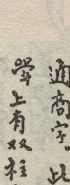 通商字此
斝上有双柱